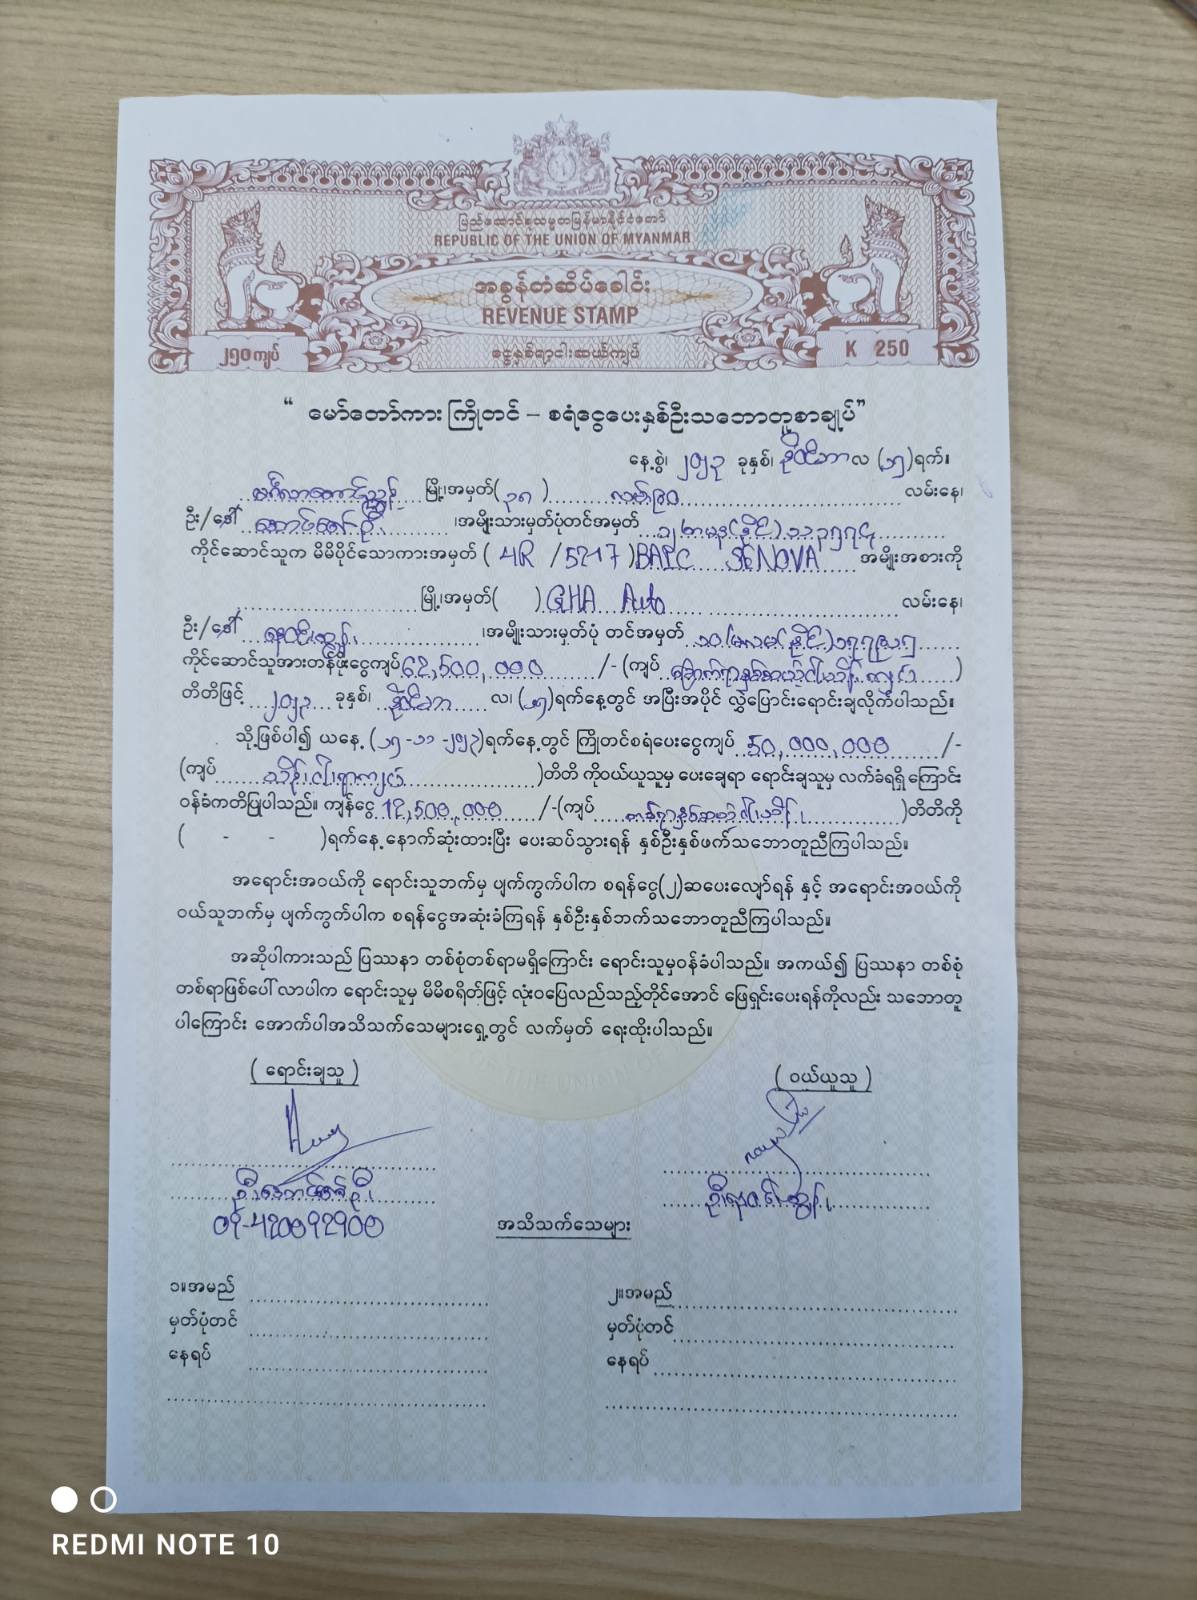 ပြည်ထောင်စုသမ္မတမြန်မာနိုင်ငံတော်
REPUBLIC OF THE UNION OF MYANMAR
အခွန်တံဆိပ်ခေါင်း
REVENUE STAMP
၂၅၀ကျပ် ငွေနှစ်ရာငါးဆယ်ကျပ် K 250
“ မော်တော်ကား ကြိုတင် – စရံငွေပေးနှစ်ဦးသဘောတူစာချုပ်”
နေ့စွဲ၊ ၂၀၂၃ ခုနှစ်၊ နိုဝင်ဘာလ (၁၅)ရက်။
မင်္ဂလာတောင်ညွန့် မြို့၊အမှတ်( ၃၈ ) လမ်း၉၀ လမ်းနေ၊
ဦး/ဒေါ် အောင်ဇော်ဦး ၊အမျိုးသားမှတ်ပုံတင်အမှတ်
ကိုင်ဆောင်သူက မိမိပိုင်သောကားအမှတ် ( 4R / 5217 )BAIC SENOVA အမျိုးအစားကို
မြို့၊အမှတ်( ) GHA Auto လမ်းနေ၊
ဦး/ဒေါ် ၊အမျိုးသားမှတ်ပုံ တင်အမှတ်
ကိုင်ဆောင်သူအားတန်ဖိုးငွေကျပ် 62,500,000 /- (ကျပ် ခြောက်ရာနှစ်ဆယ့်ငါးသိန်း )
တိတိဖြင့် ၂၀၂၃ ခုနှစ်၊ နိုဝင်ဘာ လ၊ (၁၅)ရက်နေ့တွင် အပြီးအပိုင် လွှဲပြောင်းရောင်းချလိုက်ပါသည်။
သို့ဖြစ်ပါ၍ ယနေ့ (၁၅-၁၁-၂၀၂၃)ရက်နေ့တွင် ကြိုတင်စရံပေးငွေကျပ် 50,000,000 /-
(ကျပ် သိန်းငါးရာကျပ် )တိတိ ကိုဝယ်ယူသူမှ ပေးချေရာ ရောင်းချသူမှ လက်ခံရရှိ ကြောင်း
ဝန်ခံကတိပြုပါသည်။ ကျန်ငွေ 12,500,000 /-(ကျပ် တစ်ရာနှစ်ဆယ့်ငါးသိန်း )တိတိကို
( - - )ရက်နေ့ နောက်ဆုံးထားပြီး ပေးဆပ်သွားရန် နှစ်ဦးနှစ်ဖက်သဘောတူညီကြပါသည်။
အရောင်းအဝယ်ကို ရောင်းသူဘက်မှ ပျက်ကွက်ပါက စရန်ငွေ(၂)ဆပေးလျော်ရန် နှင့် အရောင်းအဝယ်ကို
ဝယ်သူဘက်မှ ပျက်ကွက်ပါက စရန်ငွေအဆုံးခံကြရန် နှစ်ဦးနှစ်ဘက်သဘောတူညီကြပါသည်။
အဆိုပါကားသည် ပြဿနာ တစ်စုံတစ်ရာမရှိကြောင်း ရောင်းသူမှဝန်ခံပါသည်။ အကယ်၍ ပြဿနာ တစ်စုံ
တစ်ရာဖြစ်ပေါ် လာပါက ရောင်းသူမှ မိမိစရိတ်ဖြင့် လုံးဝပြေလည်သည့်တိုင်အောင် ဖြေရှင်းပေးရန်ကိုလည်း သဘောတူ
ပါကြောင်း အောက်ပါအသိသက်သေများရှေ့တွင် လက်မှတ် ရေးထိုးပါသည်။
( ရောင်းချသူ ) ( ဝယ်ယူသူ )
ဦးအောင်ဇော်ဦး
09-420092900 အသိသက်သေများ
၁။အမည် ၂။အမည်
မှတ်ပုံတင် မှတ်ပုံတင်
နေရပ် နေရပ်
REDMI NOTE 10